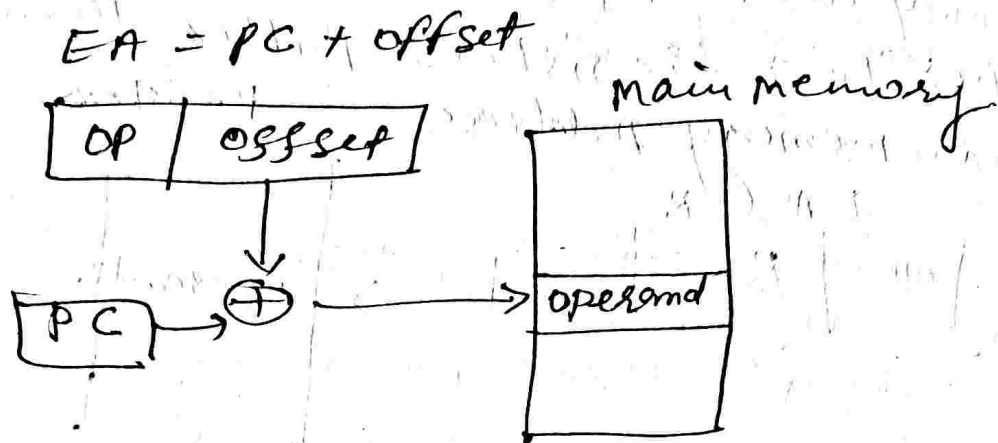 EA = PC + Offset
main memory
OP offset
operand
PC